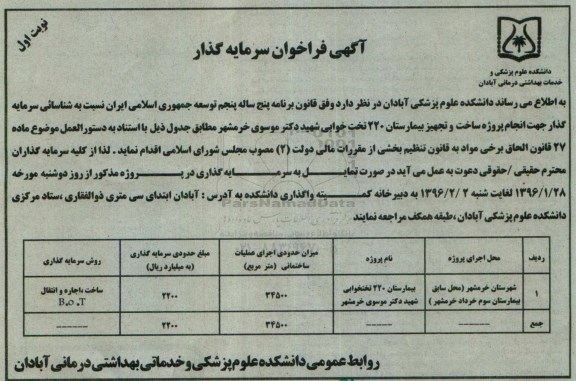 نوبت اول
آگهی فراخوان سرمایه گذار
دانشکده علوم پزشکی و
خدمات بهداشتی درمانی آبادان
به اطلاع می رساند دانشکده علوم پزشکی آبادان در نظر دارد وفق قانون برنامه پنج ساله پنجم توسعه جمهوری اسلامی ایران نسبت به شناسائی سرمایه
گذار جهت انجام پروژه ساخت و تجهیز بیمارستان ۲۲۰ تخت خوابی شهید دکتر موسوی خرمشهر مطابق جدول ذیل با استناد به دستورالعمل موضوع ماده
۲۷ قانون الحاق برخی مواد به قانون تنظیم بخشی از مقررات مالی دولت (۲) مصوب مجلس شورای اسلامی اقدام نماید . لذا از کلیه سرمایه گذاران
محترم حقیقی /حقوقی دعوت به عمل می آید در صورت تمایل به سرمایه گذاری در پروژه مذکور از روز دوشنبه مورخه
۱۳۹۶/۱/۲۸ لغایت شنبه ۱۳۹۶/۲/۲ به دبیرخانه کمیته واگذاری دانشکده به آدرس : آبادان ابتدای سی متری ذوالفقاری ،ستاد مرکزی
دانشکده علوم پزشکی آبادان ،طبقه همکف مراجعه نمایند
ParsNamadData
ردیف محل اجرای پروژه نام پروژه میزان حدودی اجرای عملیات ساختمانی (متر مربع) مبلغ حدودی سرمایه گذاری (به میلیارد ریال) روش سرمایه گذاری
۱ شهرستان خرمشهر (محل سابق بیمارستان سوم خرداد خرمشهر ) بیمارستان ۲۲۰ تختخوابی شهید دکتر موسوی خرمشهر ۳۴۵۰۰ ۲۲۰۰ ساخت ،اجاره و انتقال B.o.T
جمع ------ ------ ۳۴۵۰۰ ۲۲۰۰ ------
روابط عمومی دانشکده علوم پزشکی و خدماتی بهداشتی درمانی آبادان